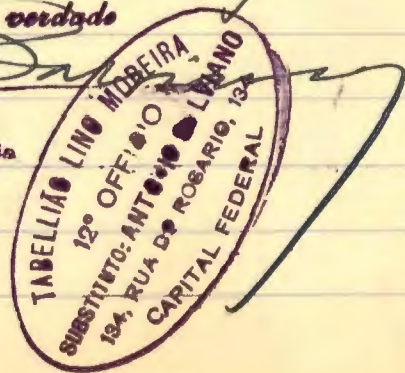 verdade
TABELLIÃO LINO MOREIRA
12º OFFICIO
SUBSTITUTO: ANTONIO LUCIANO
134, RUA DO ROSARIO, 134
CAPITAL FEDERAL